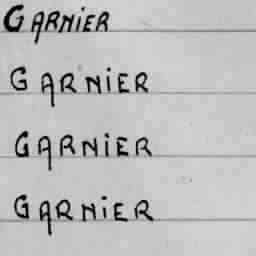 GARNiER
GARNiER
GARNiER
GARNiER